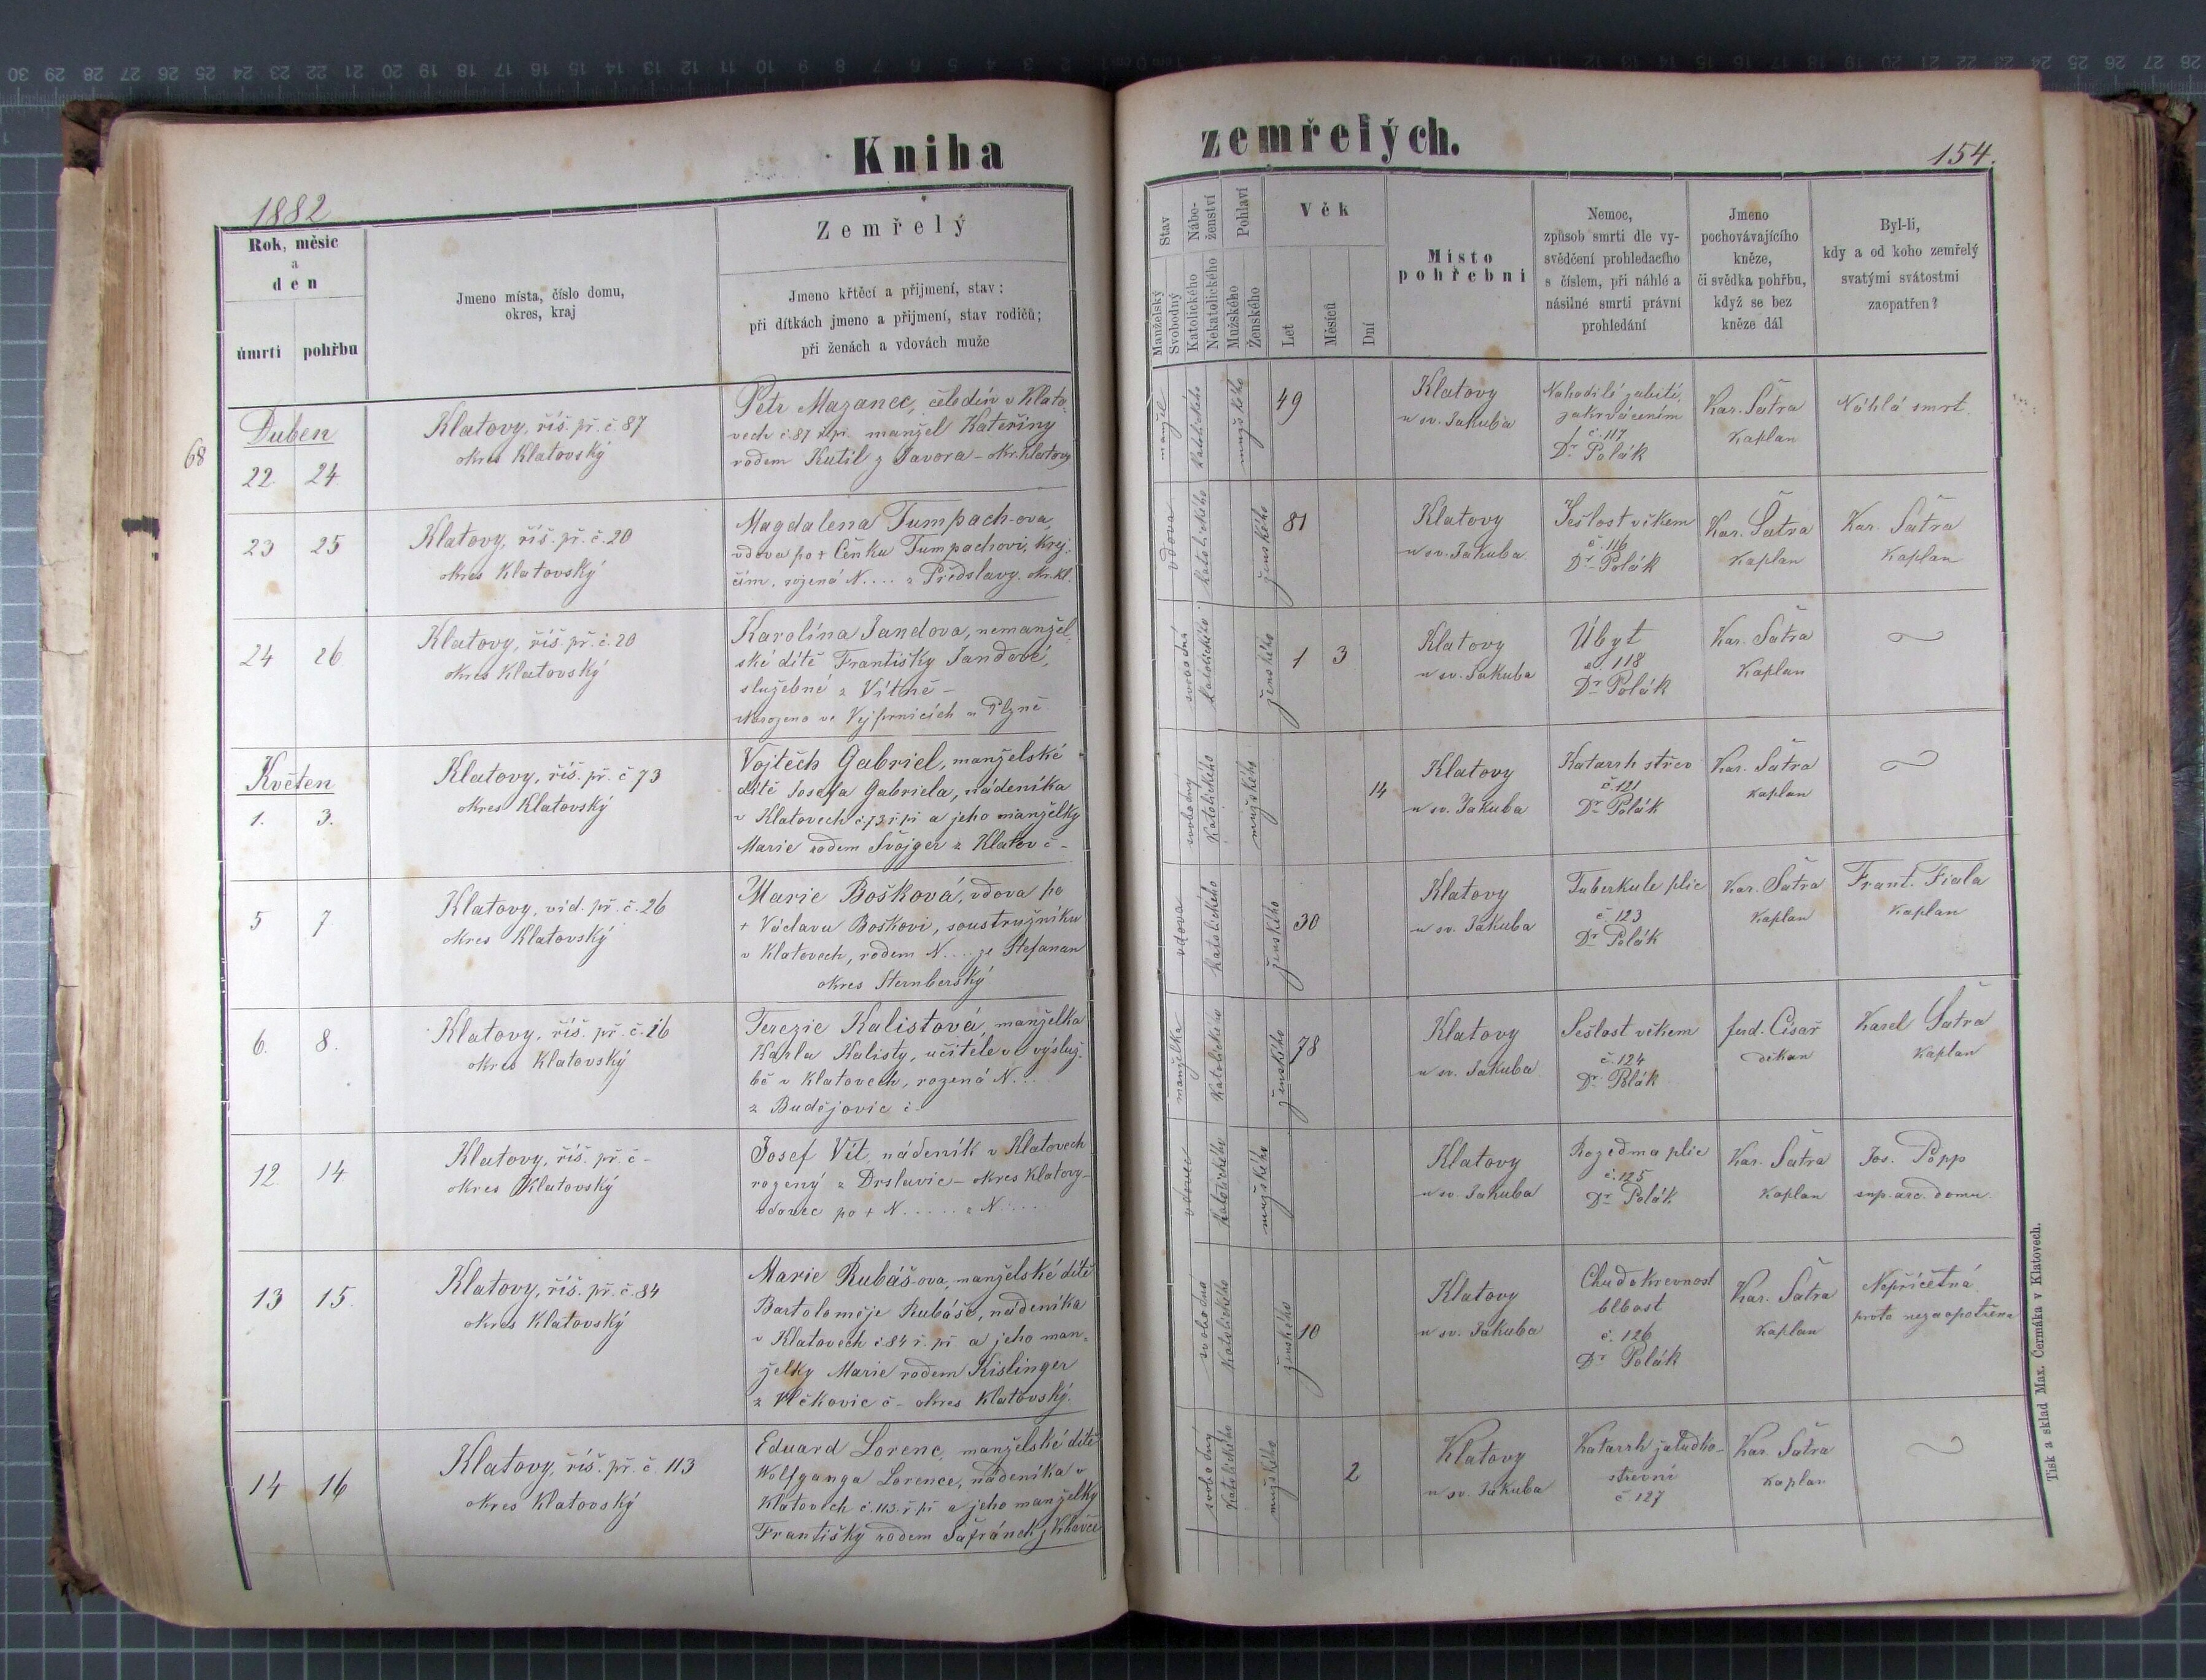 Kniha
zemřelých.
154.
1882
Rok, měsíc
a
den
úmrtí
pohřbu
Jmeno místa, číslo domu,
okres, kraj
Zemřelý
Jmeno křtěcí a přijmení, stav:
při dítkách jmeno a přijmení, stav rodičů;
při ženách a vdovách muže
Stav
Manželský
Svobodný
Nábo-
ženství
Katolického
Nekatolického
Pohlaví
Mužského
Ženského
Věk
Let
Měsíců
Dní
Místo
pohřební
Nemoc,
způsob smrti dle vy-
svědčení prohledacího
s číslem, při náhlé a
násilné smrti právní
prohledání
Jmeno
pochovávajícího
kněze,
či svědka pohřbu,
když se bez
kněze dál
Byl-li,
kdy a od koho zemřelý
svatými svátostmi
zaopatřen?
68
Duben
22. 24.
Klatovy, říš. př. č. 87
okres Klatovský
Petr Mazanec, čeledín v Klato-
vech č. 87 ř. př. manžel Kateřiny
rodem Kutil z Javora – okr. Klatovy
manžel
katolického
mužského
49
Klatovy
u sv. Jakuba
Nahodilé zabití,
zakrvácením
č. 117
Dr Polák
Kar. Šatra
Kaplan
Náhlá smrt.
23 25
Klatovy, říš. př. č. 20
okres Klatovský
Magdalena Tumpach-ova,
vdova po + Čeňku Tumpachovi, krej-
čím, rozená N.... z Předslavy. okr. Kl.
vdova
katolického
ženského
81
Klatovy
u sv. Jakuba
Sešlost věkem
č. 116
Dr Polák
Kar. Šatra
Kaplan
Kar. Šatra
Kaplan
24 26
Klatovy, říš. př. č. 20
okres Klatovský
Karolína Jandova, nemanžel-
ské dítě Františky Jandové,
služebné z Vítně –
Narozena ve Vejprnicích u Plzně
svobodná
katolického
ženského
1 3
Klatovy
u sv. Jakuba
Úbyt
č. 118
Dr Polák
Kar. Šatra
Kaplan
Květen
1. 3.
Klatovy, říš. př. č 73
okres Klatovský
Vojtěch Gabriel, manželské
dítě Josefa Gabriela, nádeníka
v Klatovech č. 73 ř. př. a jeho manželky
Marie rodem Švojger z Klatov č –
svobodný
katolického
mužského
14
Klatovy
u sv. Jakuba
Katarrh střev
č. 121
Dr Polák
Kar. Šatra
Kaplan
5 7.
Klatovy, víd. př. č. 26
okres Klatovský
Marie Bošková, vdova po
+ Václavu Boškovi, soustružníku
v Klatovech, rodem N.... ze Štefanan
okres Sternberský
vdova
katolického
ženského
30
Klatovy
u sv. Jakuba
Tuberkule plic
č. 123
Dr Polák
Kar. Šatra
Kaplan
Frant. Fiala
Kaplan
6. 8.
Klatovy, říš. př. č. 16
okres Klatovský
Terezie Kalistová, manželka
Karla Kalisty, učitele ve výsluž-
bě v Klatovech, rozená N...
z Budějovic č.
manželka
katolického
ženského
78
Klatovy
u sv. Jakuba
Sešlost věkem
č. 124
Dr Polák
ferd. Císař
děkan
Karel Šatra
Kaplan
12 14
Klatovy, říš. př. č –
okres Klatovský
Josef Vít, nádeník v Klatovech
rozený z Drslavic – okres Klatovy –
vdovec po + N..... z N.....
vdovec
katolického
mužského
Klatovy
u sv. Jakuba
Rozedma plic
č. 125
Dr Polák
Kar. Šatra
Kaplan
Jos. Popp
sup. arc. domu.
13 15.
Klatovy, říš. př. č. 84
okres Klatovský
Marie Rubáš-ova, manželské dítě
Bartoloměje Rubáše, nádeníka
v Klatovech č. 84 ř. př. a jeho man-
želky Marie rodem Kislinger
z Vlčkovic č – okres Klatovský.
svobodna
katolického
ženského
10
Klatovy
u sv. Jakuba
Chudokrevnost
blbost
č. 126
Dr Polák
Kar. Šatra
Kaplan
Nepříčetná
proto nezaopatřena
14 16
Klatovy, říš. př. č. 113
okres Klatovský
Eduard Lorenc, manželské dítě
Wolfganga Lorence, nádeníka v
Klatovech č. 113. ř. př. a jeho manželky
Františky rodem Šafránek z
svobodný
katolického
mužského
2
Klatovy
u sv. Jakuba
Katarrh žaludko-
střevní
č. 127
Kar. Šatra
Kaplan
Tisk a sklad Max. Čermáka v Klatovech.